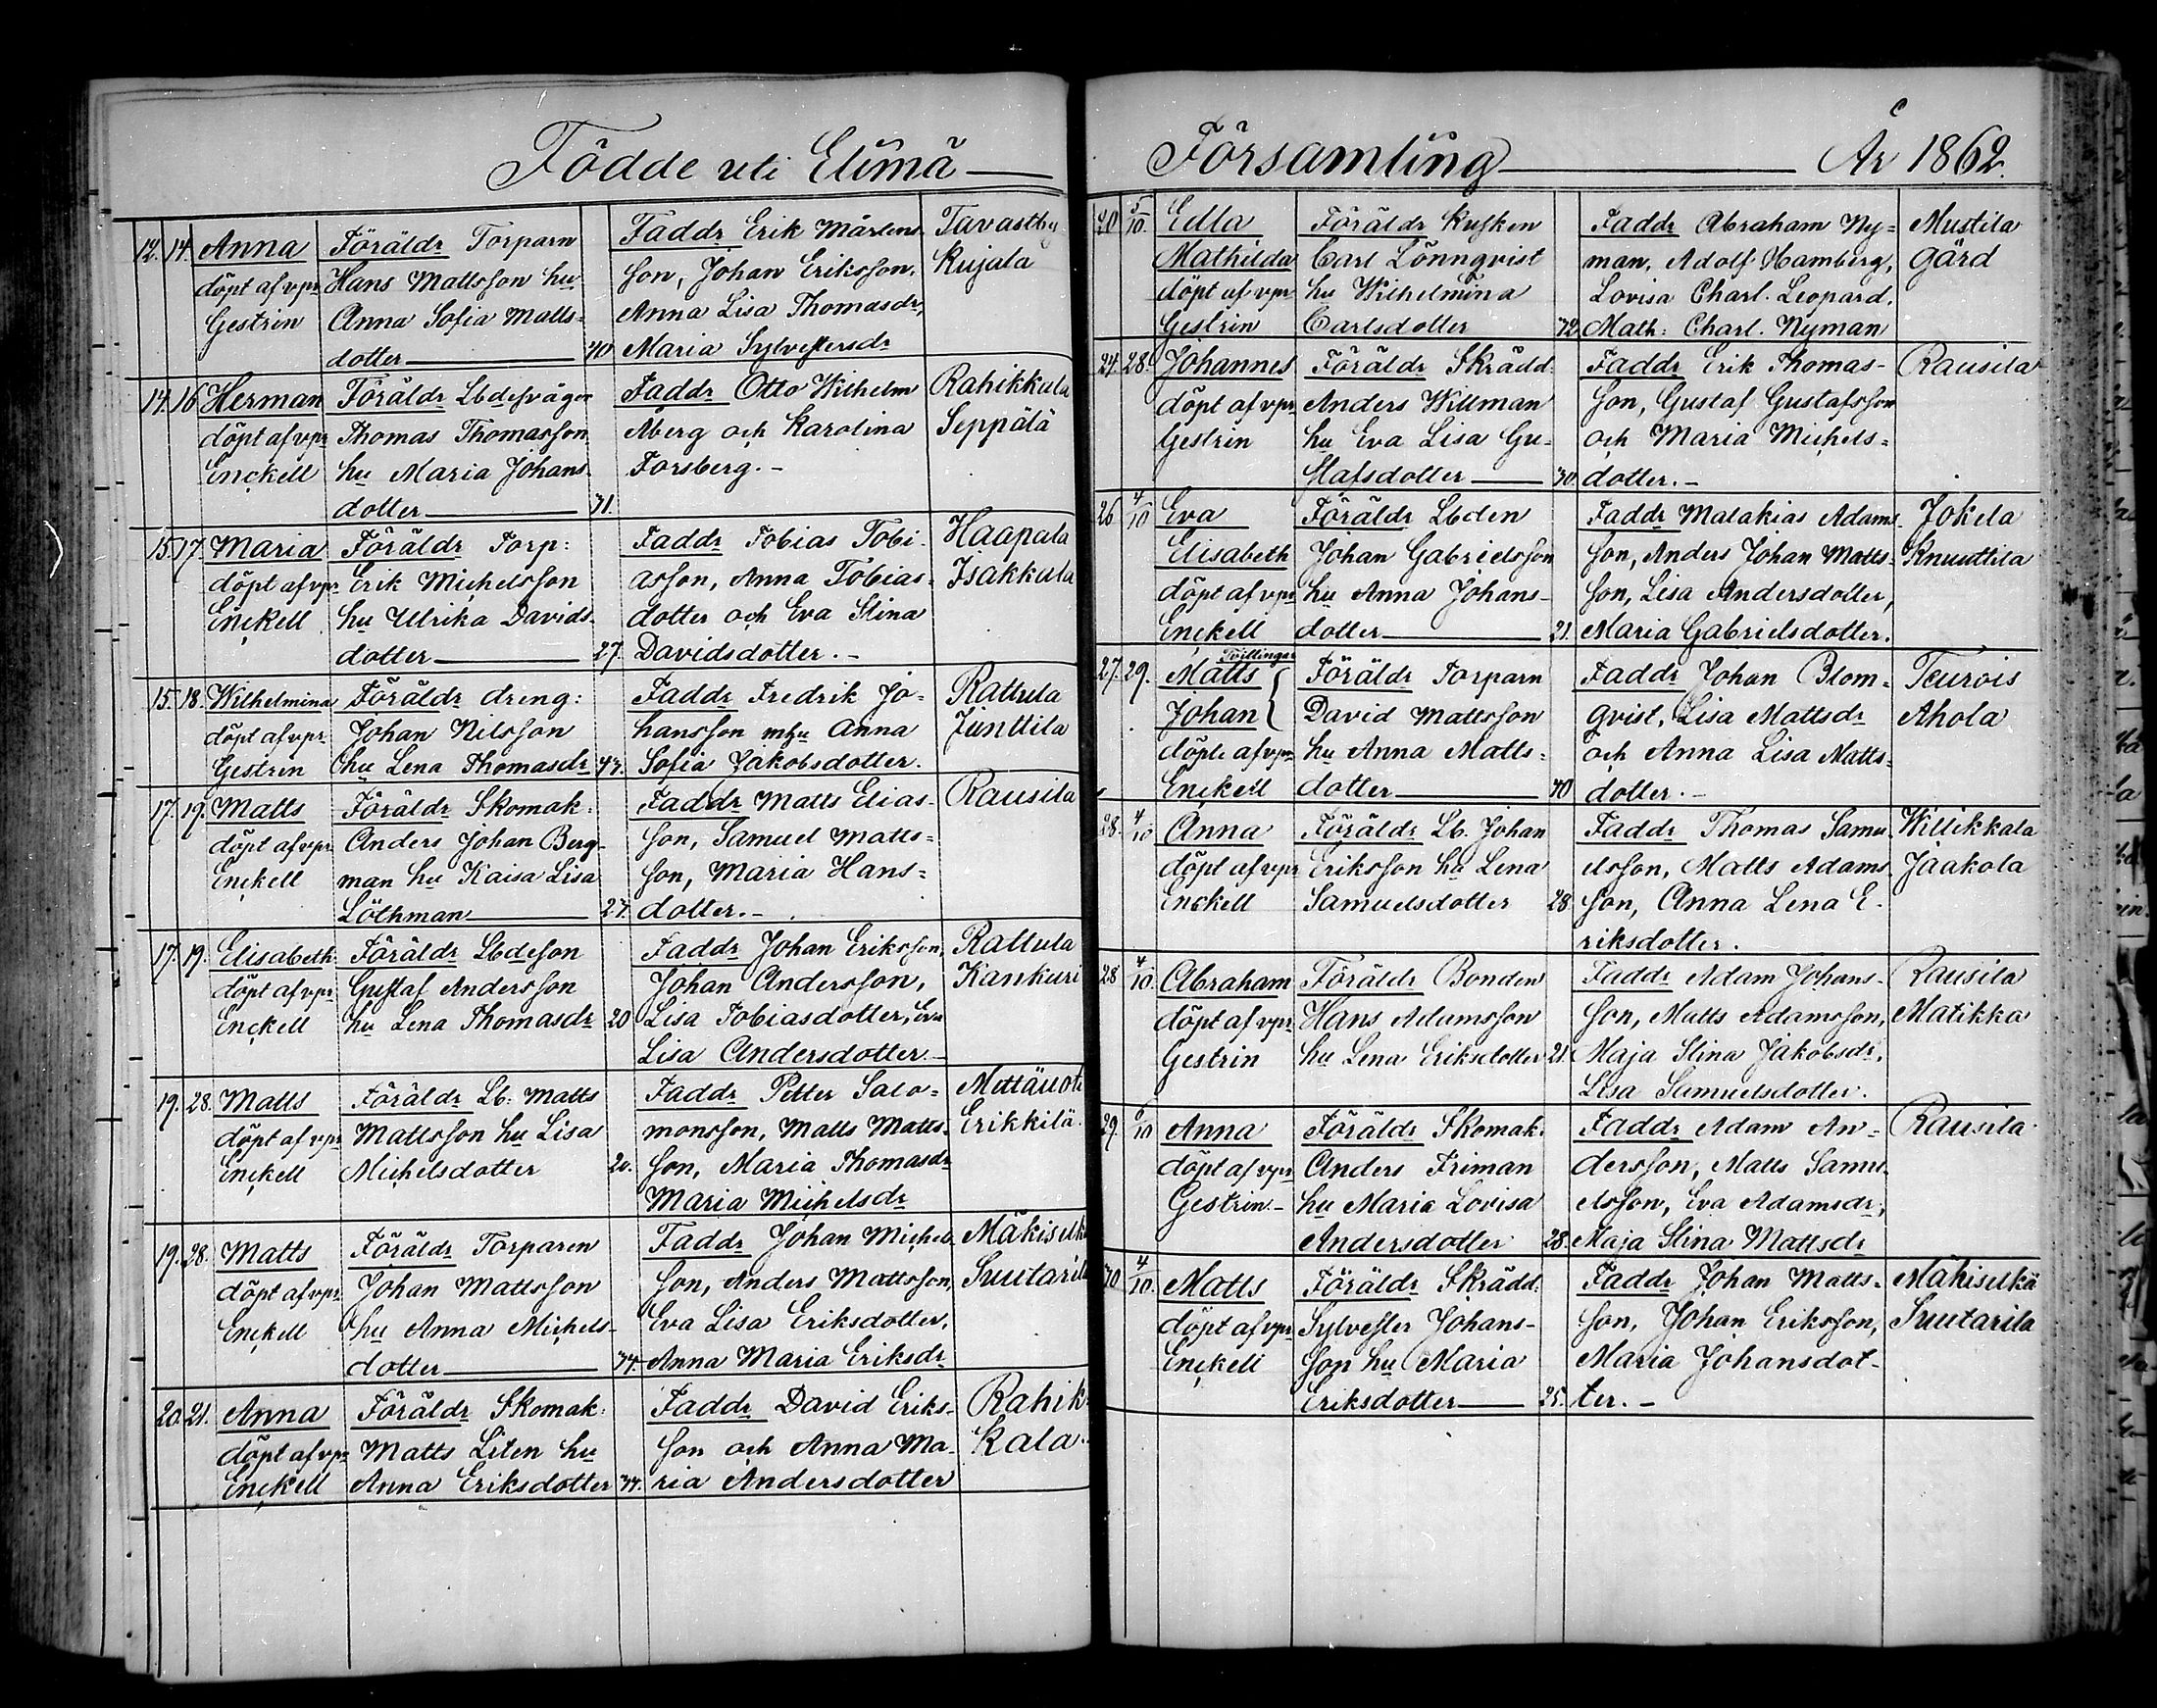 Födde uti Elimä
12. 14. Anna Föräldr Torparn Faddr Erik Mårtens- Tavastby
döpt af vpr Hans Mattsson hu son, Johan Eriksson, Kujala
Gestrin Anna Sofia Matts- Anna Lisa Thomasdr,
dotter 40 Maria Sylvestersdr
14. 16 Herman Föräldr Lbdesvågen Faddr Otto Wilhelm Rahikkala
döpt af vpr Thomas Thomasson Åberg och Karolina Seppälä
Enckell hu Maria Johans- Forsberg. -
dotter 41.
15. 17. Maria Föräldr Torp: Faddr Tobias Tobi- Haapala
döpt af vpr Erik Michelsson asson, Anna Tobias- Isakkala
Enckell hu Ulrika Davids- dotter och Eva Stina
dotter 27. Davidsdotter. -
15. 18. Wilhelmina Föräldr dreng: Faddr Fredrik Jo- Rattula
döpt af vpr Johan Nilsson hansson mhu Anna Junttila
Gestrin hu Lena Thomasdr 43. Sofia Jakobsdotter.
17. 19. Matts Föräldr Skomak: Faddr Matts Elias- Rausila
döpt af vpr Anders Johan Berg- son, Samuel Matts-
Enckell man hu Kaisa Lisa son, Maria Hans-
Löthman 27. dotter. -
17. 19. Elisabeth Föräldr Lbdeson Faddr Johan Eriksson, Rattula
döpt af vpr Gustaf Andersson Johan Andersson, Kankuri
Enckell hu Lena Thomasdr 20 Lisa Tobiasdotter, Eva
Lisa Andersdotter -
19. 28. Matts Föräldr Lb: Matts Faddr Petter Salo- Mettäuoti
döpt af vpr Mattsson hu Lisa monsson, Matts Matts- Erikkilä
Enckell Michelsdotter 20. son, Maria Thomasdr
Maria Michelsdr
19. 28. Matts Föräldr Torparen Faddr Johan Michels- Mäkiselk
döpt af vpr Johan Mattsson son, Anders Mattsson, Suutarila
Enckell hu Anna Michels- Eva Lisa Eriksdotter,
dotter 34. Anna Maria Eriksdr
20. 21. Anna Föräldr Skomak: Faddr David Eriks- Rahik-
döpt af vpr Matts Liten hu son och Anna Ma- kala.
Enckell Anna Eriksdotter 34. ria Andersdotter
Församling År 1862.
20 5/10. Edla Föräldr Kusken Faddr Abraham Ny- Mustila
Mathilda Carl Lönnqvist man, Adolf Hamberg, Gård
döpt af vpr hu Wilhelmina Lovisa Charl. Leopard.
Gestrin Carlsdotter 32 Math: Charl. Nyman
24. 28. Johannes Föräldr Skrädd. Faddr Erik Thomas- Rausila
döpt af vpr Anders Willman son, Gustaf Gustafsson
Gestrin hu Eva Lisa Gu- och Maria Michels-
stafsdotter 30. dotter. -
26 4/10 Eva Föräldr Lbden Faddr Malakias Adams- Jokela
Elisabeth Johan Gabrielsson son, Anders Johan Matts- Knuuttila
döpt af vpr hu Anna Johans- son, Lisa Andersdotter,
Enckell dotter 21. Maria Gabrielsdotter.
Tvillingar
27. 29. Matts Föräldr Torparn Faddr Johan Blom- Teurois
Johan David Mattsson qvist, Lisa Mattsdr Ahola
döpte af vpr hu Anna Matts- och Anna Lisa Matts-
Enckell dotter 40 dotter. -
28. 4/10 Anna Föräldr Lb. Johan Faddr Thomas Samu- Willikkala
döpt af vpr Eriksson hu Lena elsson, Matts Adams- Jaakola
Enckell Samuelsdotter 28 son, Anna Lena E-
riksdotter.
28 4/10. Abraham Föräldr Bonden Faddr Adam Johans- Rausila
döpt af vpr Hans Adamsson son, Matts Adamsson, Matikka
Gestrin hu Lena Eriksdotter 21. Maja Stina Jakobsdr,
Lisa Samuelsdotter.
29. 6/10 Anna Föräldr Skomak. Faddr Adam An- Rausila
döpt af vpr Anders Friman dersson, Matts Samu-
Gestrin - hu Maria Lovisa elsson, Eva Adamsdr,
Andersdotter 28. Maja Stina Mattsdr
30. 4/10. Matts Föräldr Skrädd. Faddr Johan Matts- Mäkiselkä
döpt af vpr Sylvester Johans- son, Johan Eriksson, Suutarila
Enckell son hu Maria Maria Johansdot-
Eriksdotter 25. ter. -